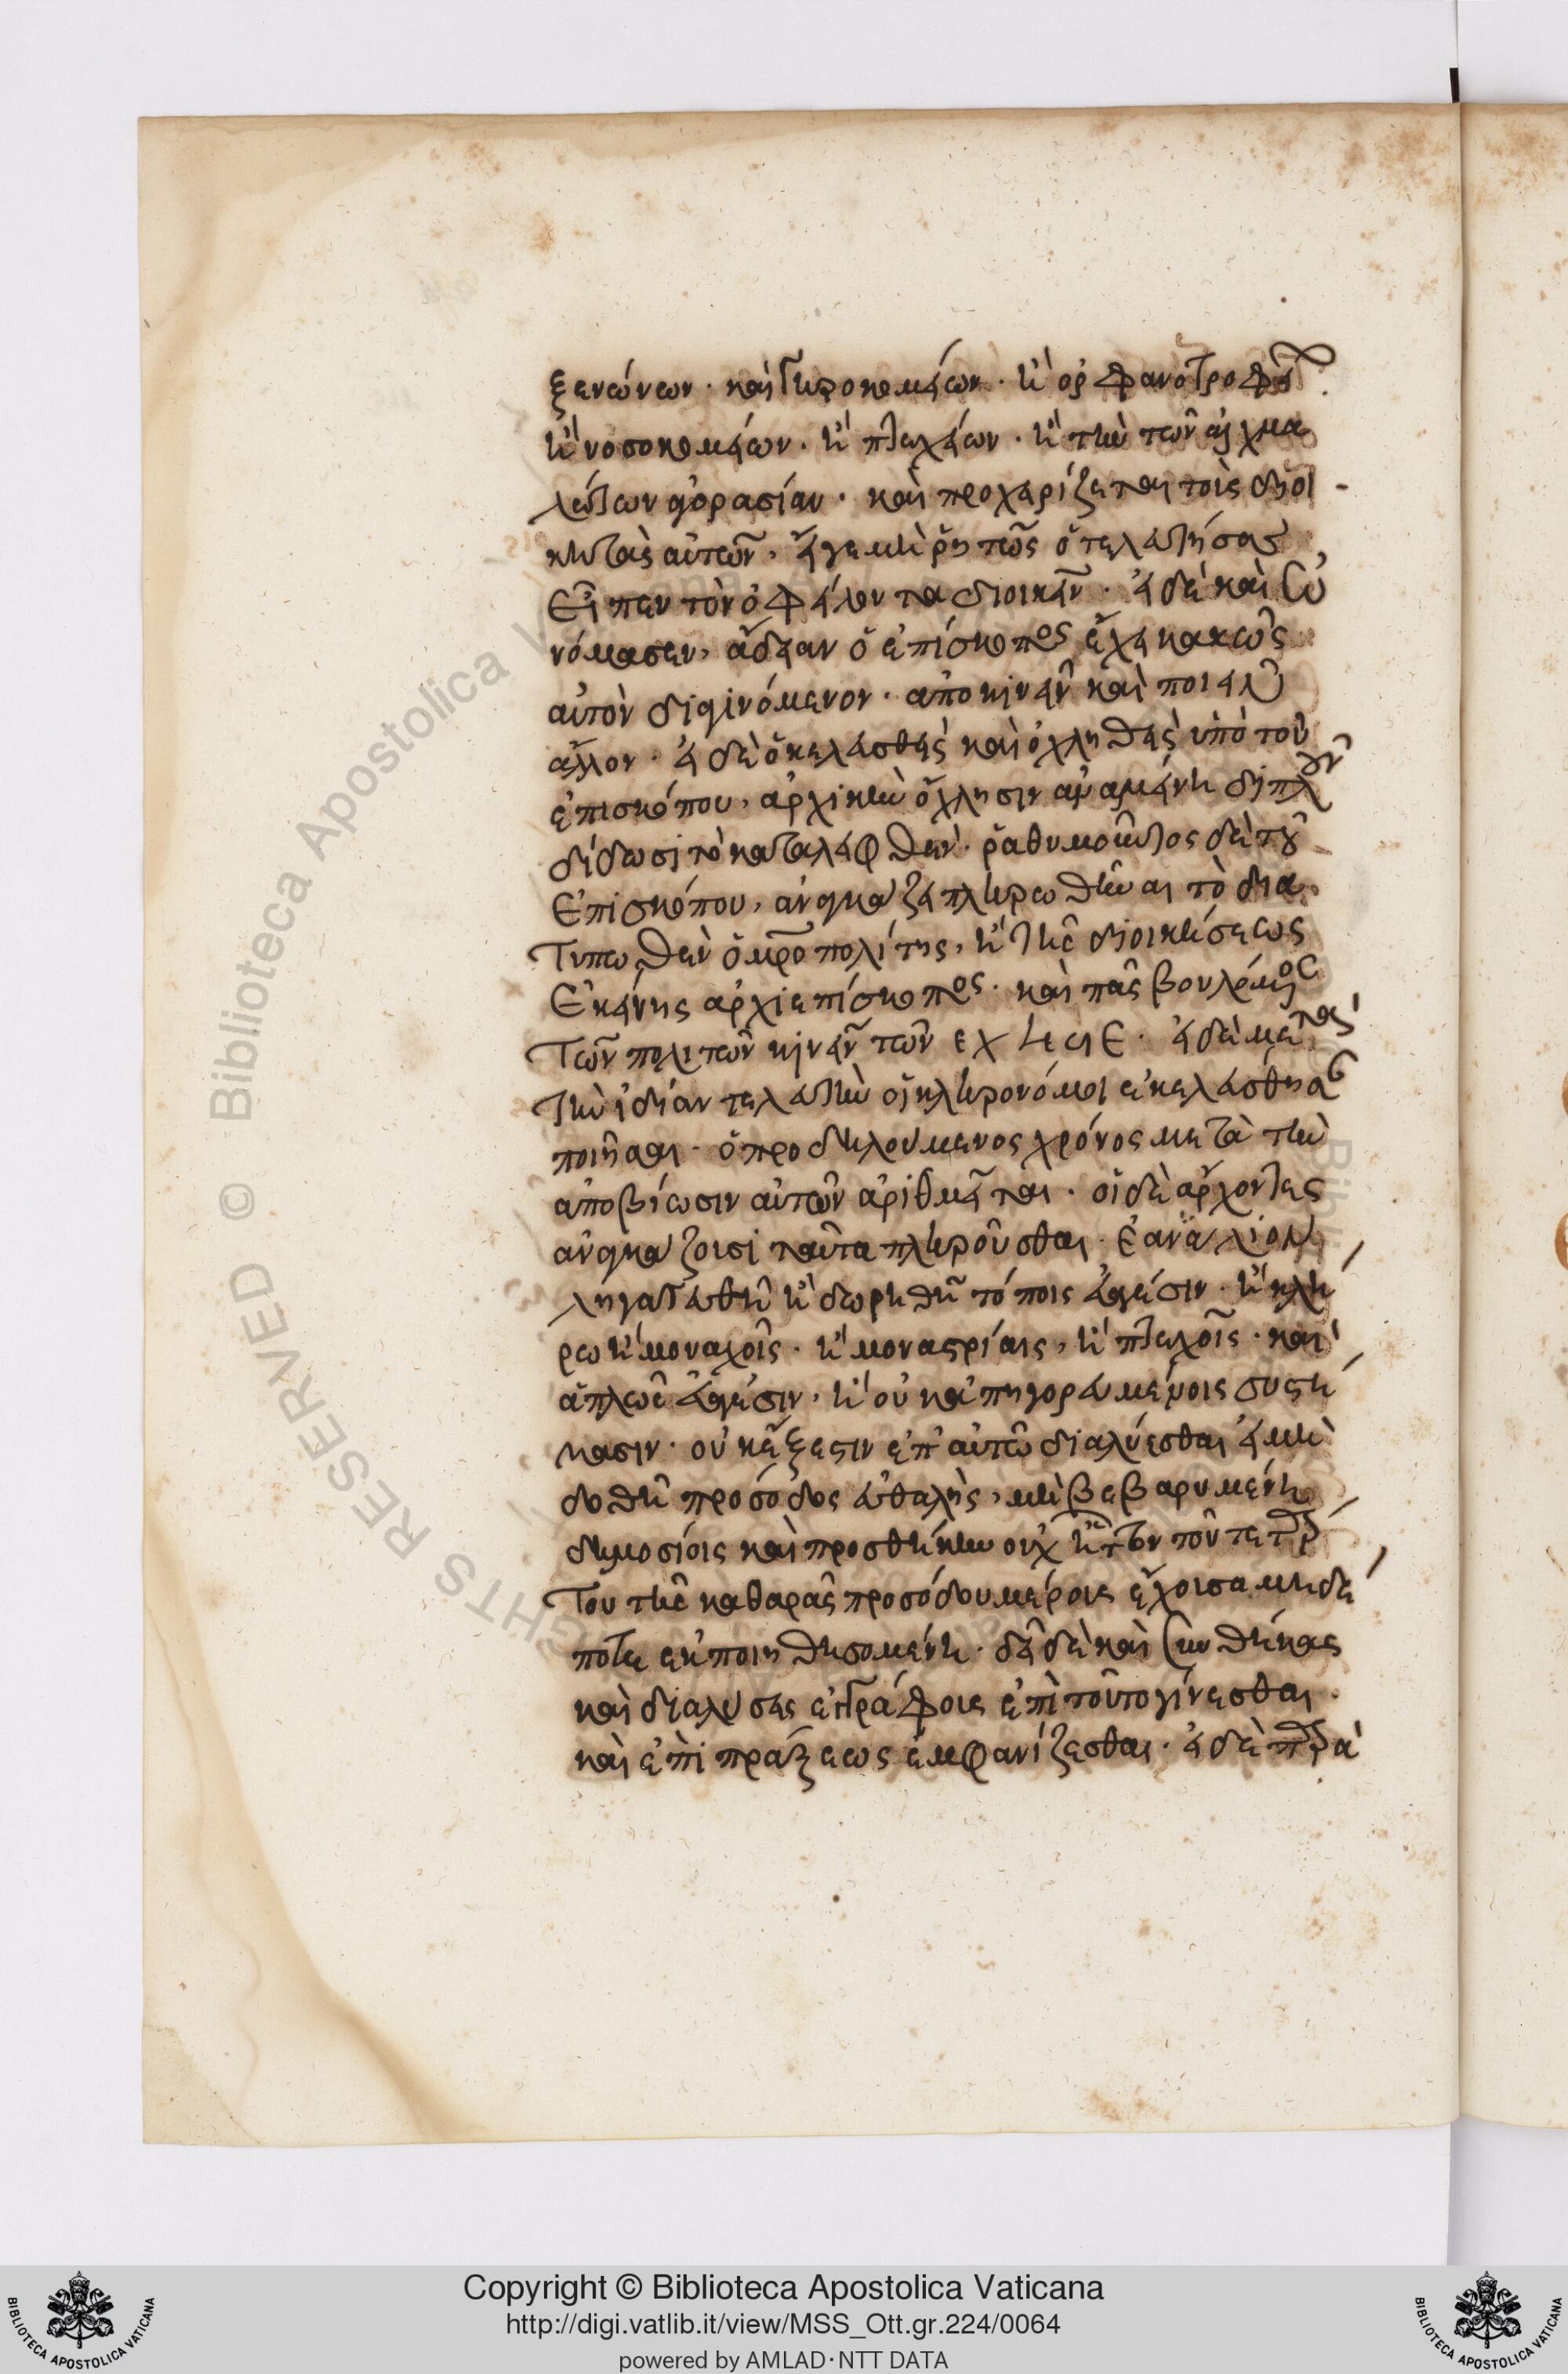 ξενώνων · καὶ γηροκομείων · κ̀ ὀρφανοτροφεί
κ̀ νοσοκομείων · κ̀ πτωχείων · κ̀ τὴν τῶν αἰχμα
λώτων ἀγορασίαν · καὶ προχειρίζεται τοὺς διοι -
κητὰς αὐτῶν, εἴγε μὴ ῥητῶς ὁ τελευτήσας
εἶπεν τὸν ὀφείλοντα διοικεῖν · εἰ δὲ καὶ ὠ
νόμασεν, ἄδειαν ὁ ἐπίσκοπος ἔχει κακῶς
αὐτὸν διαγινόμενον · ἀποκινεῖν καὶ ποιεῖν
ἄλλον · εἰ δὲ ὁ κελευσθεὶς καὶ ὀχληθεὶς ὑπὸ τοῦ
ἐπισκόπου, ἀρχικὴν ὄχλησιν ἀναμένει διπλοῦν
δίδωσι τὸ καταλειφθέν · ῥαθυμοῦντος δὲ τοῦ
ἐπισκόπου, ἀναγκάζει πληρωθῆναι τὸ δια
τυπωθὲν ὁ μητροπολίτης, κ̀ τῆς διοικήσεως
ἐκείνης ἀρχιεπίσκοπος · καὶ πᾶς βουλόμενος
τῶν πολιτῶν κινεῖν τῶν · εἰ δὲ μετὰ
τὴν ἰδίαν τελευτὴν οἱ κληρονόμοι ἐκελεύσθησαν
ποιῆσαι · ὁ προδηλούμενος χρόνος μετὰ τὴν
ἀποβίωσιν αὐτῶν ἀριθμεῖται · οἱ δὲ ἄρχοντες
ἀναγκάζουσι ταῦτα πληροῦσθαι · ἐὰν
ληγατευθῇ κ̀ δωρηθῇ τόποις εὐαγέσιν · κ̀ κλή
ρω κ̀ μοναχοῖς · κ̀ μοναστρίαις, κ̀ πτωχοῖς · καὶ
ἁπλῶς εὐαγέσιν, κ̀ οὐ κατηγορευμένοις συστή
μασιν · οὐκ ἔξεστιν ἐπ' αὐτῷ διαλύεσθαι εἰ μὴ
δοθῇ πρόσοδος εὐθαλὴς, μὴ βεβαρυμένη
δημοσίοις καὶ προσθήκην οὐχ ἧττον τοῦ τετάρ
του τῆς καθαρᾶς προσόδου μέρους ἔχουσα μηδέ
ποτε ἐκποιηθησομένη · δεῖ δὲ καὶ συνθήκας
καὶ διαλύσεις ἐγγράφους ἐπὶ τούτο γίνεσθαι ·
καὶ ἐπὶ πράξεως ἐμφανίζεσθαι · εἰ δὲ παρὰ
Copyright © Biblioteca Apostolica Vaticana
http://digi.vatlib.it/view/MSS_Ott.gr.224/0064
powered by AMLAD·NTT DATA